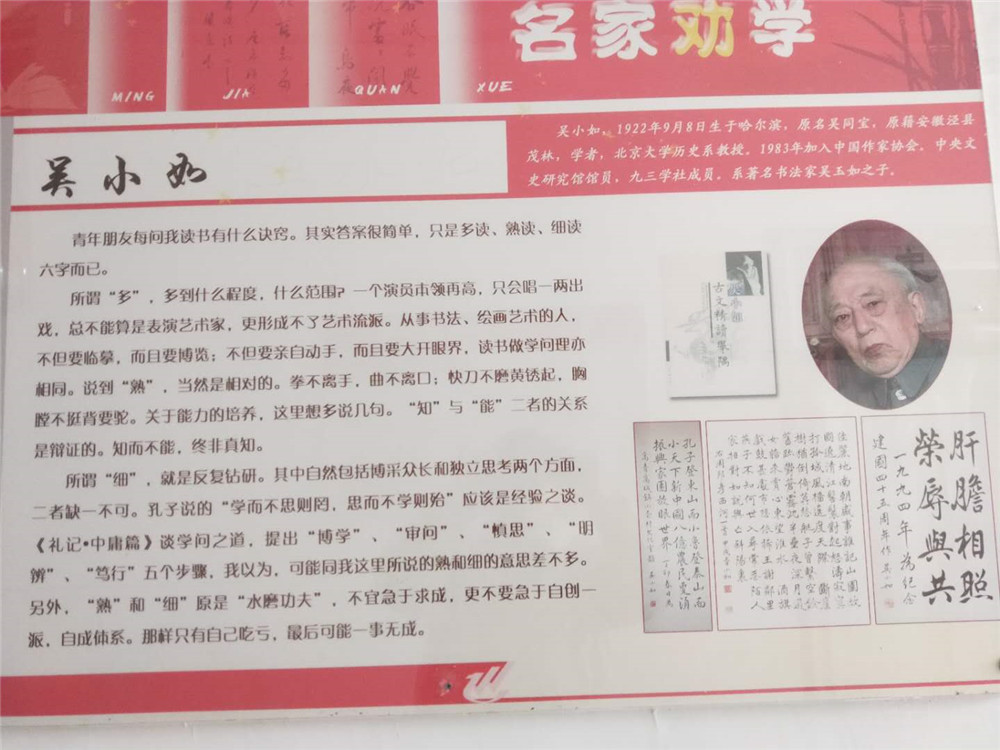 名家劝学
MING JIA QUAN XUE
吴小如
吴小如，1922年9月8日生于哈尔滨，原名吴同宝，原籍安徽泾县
茂林，学者，北京大学历史系教授。1983年加入中国作家协会。中央文
史研究馆馆员，九三学社成员。系著名书法家吴玉如之子。
青年朋友每问我读书有什么诀窍。其实答案很简单，只是多读、熟读、细读
六字而已。
所谓“多”，多到什么程度，什么范围？一个演员本领再高，只会唱一两出
戏，总不能算是表演艺术家，更形成不了艺术流派。从事书法、绘画艺术的人，
不但要临摹，而且要博览；不但要亲自动手，而且要大开眼界，读书做学问理亦
相同。说到“熟”，当然是相对的。拳不离手，曲不离口；快刀不磨黄锈起，胸
膛不挺背要驼。关于能力的培养，这里想多说几句。“知”与“能”二者的关系
是辩证的。知而不能，终非真知。
所谓“细”，就是反复钻研。其中自然包括博采众长和独立思考两个方面，
二者缺一不可。孔子说的“学而不思则罔，思而不学则殆”应该是经验之谈。
《礼记•中庸篇》谈学问之道，提出“博学”、“审问”、“慎思”、“明
辨”、“笃行”五个步骤，我以为，可能同我这里所说的熟和细的意思差不多。
另外，“熟”和“细”原是“水磨功夫”，不宜急于求成，更不要急于自创一
派，自成体系。那样只有自己吃亏，最后可能一事无成。
古文精读举隅
肝膽相照
榮辱與共
一九九四年為紀念
建國四十五周年作
孔子登東山而小魯登泰山而
小天下新中國八億農民
振興家園放眼世界